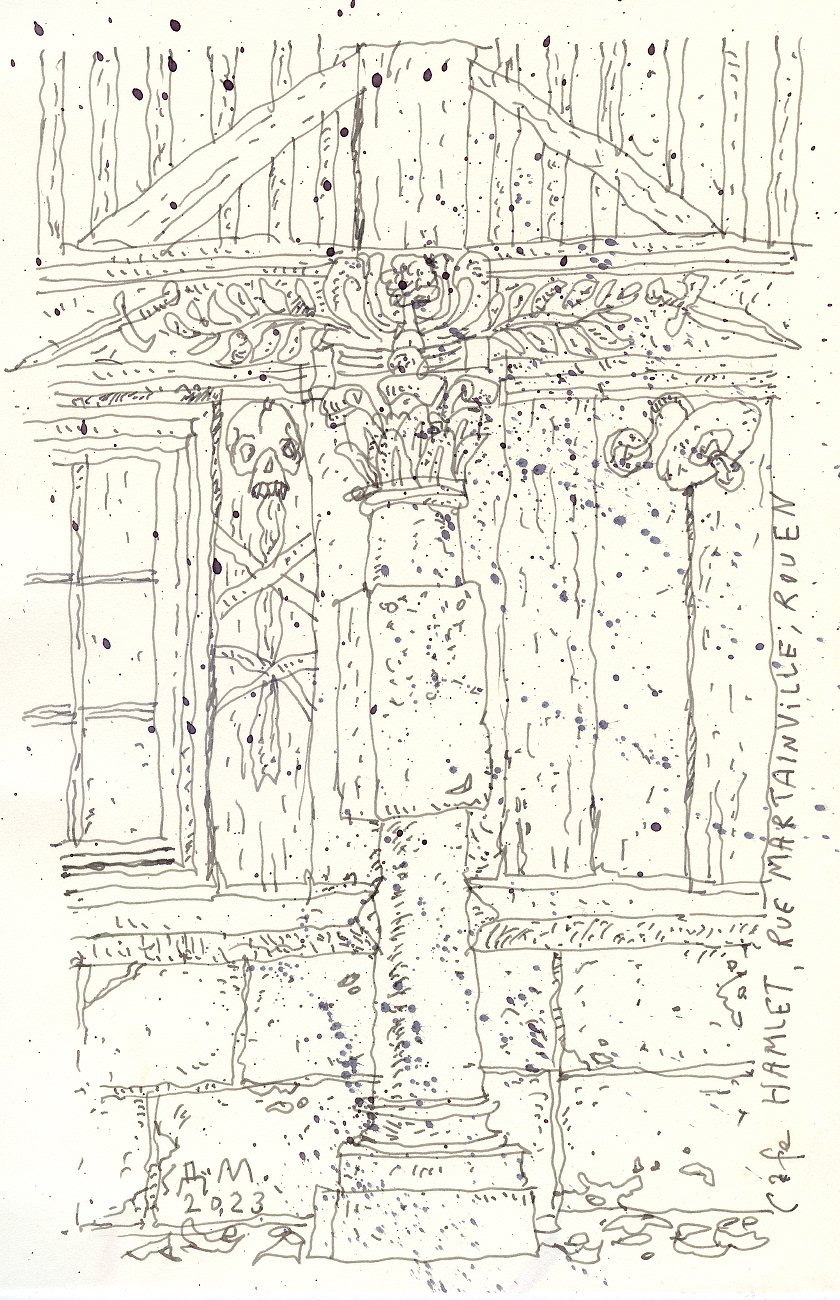 Café HAMLET, RUE MARTAINVILLE, ROUEN
ДM
2023